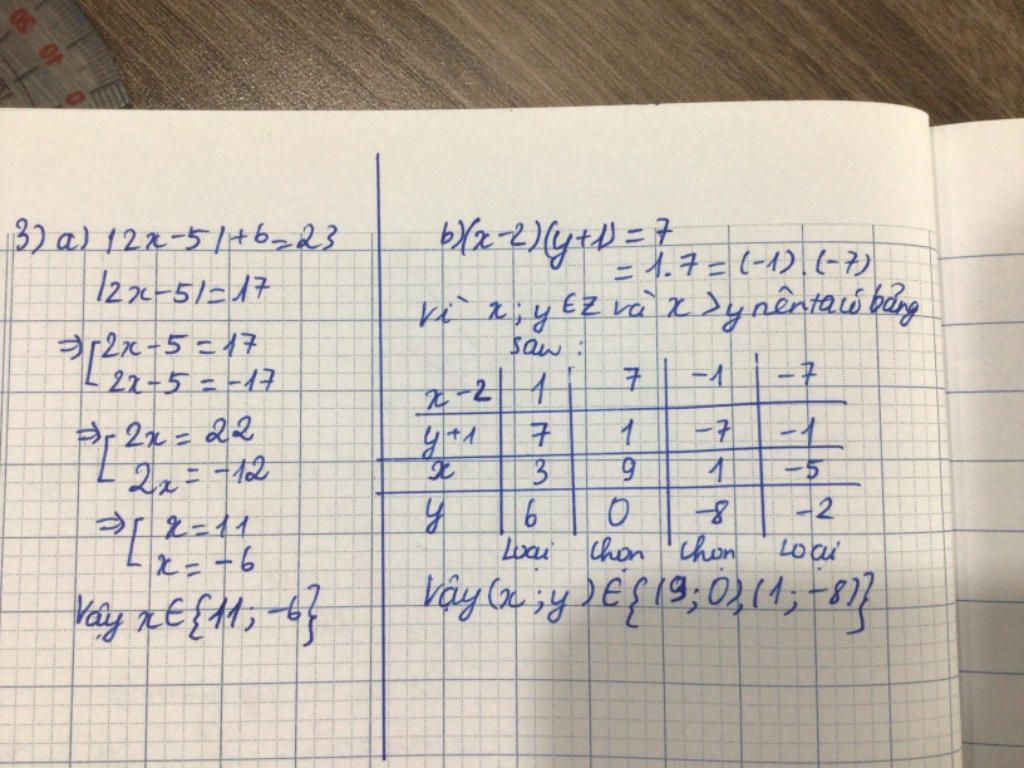 3) a) |2x-5|+6=23
|2x-5|=17
⇒[2x-5=17
2x-5=-17
⇒[2x=22
2x=-12
⇒[x=11
x=-6
Vậy x∈{11;-6}
b)(x-2)(y+1)=7
=1.7=(-1).(-7)
Vì x;y∈Z và x>y nên ta có bảng
sau:
x-2 | 1 | 7 | -1 | -7
y+1 | 7 | 1 | -7 | -1
x | 3 | 9 | 1 | -5
y | 6 | 0 | -8 | -2
Loại Chọn Chọn Loại
Vậy(x;y)∈{(9;0),(1;-8)}